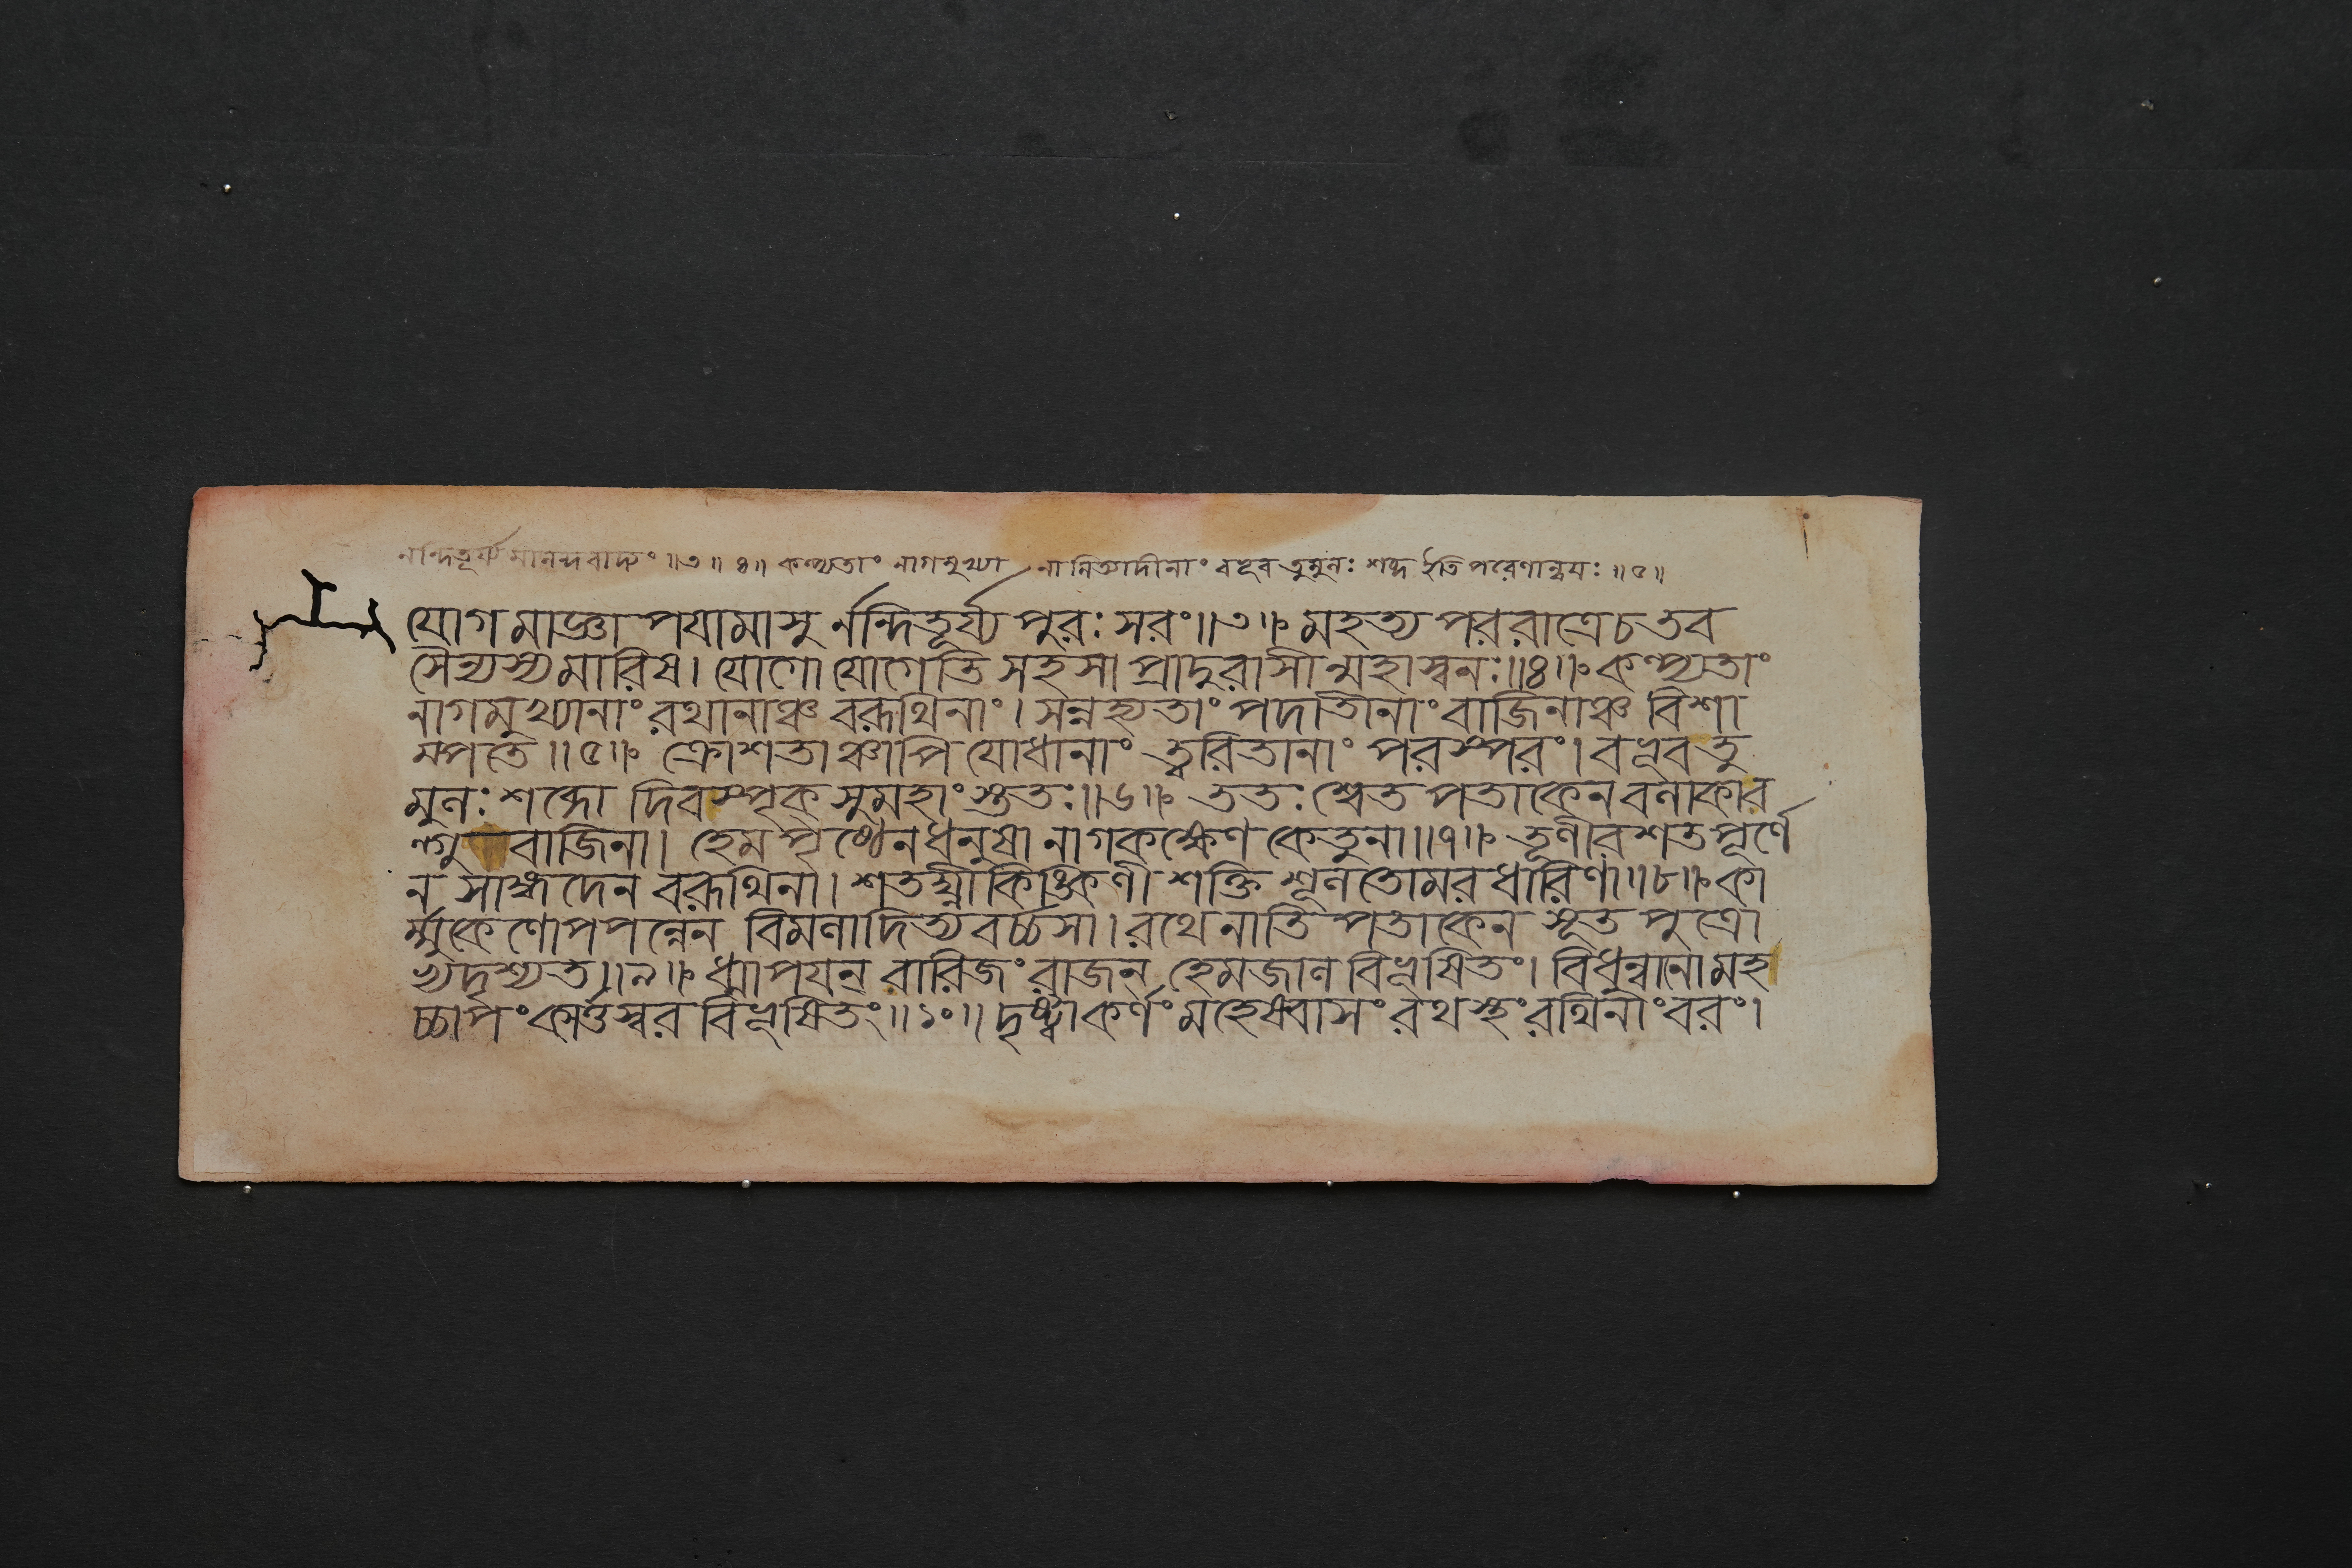 নন্দিতূর্য্যমানন্দবাদ্যং ॥৩॥ ৪॥ কল্প্যতাং নাগমুখ্যা নামিত্যাদীনাং বভূব তুমুলঃ শব্দ ইতি পরেণান্বয়ঃ ॥৫॥
যোগমাজ্ঞাপযামাসু র্নন্দিতূর্য্যপুরঃসরং॥৩॥ মহত্যপররাত্রেচ তব
সৈন্যস্য মারিষ। যোগো যোগেতি সহসা প্রাদুরাসীন্মহাস্বনঃ॥৪॥ কল্প্যতাং
নাগমুখ্যানাং রথানাঞ্চ বরূথিনাং। সন্নহ্যতাং পদাতীনাং বাজিনাঞ্চ বিশা
ম্পতে॥৫॥ ক্রোশতাঞ্চাপি যোধানাং ত্বরিতানাং পরস্পরং। বভূব তু
মুলঃ শব্দো দিবস্পৃক্ সুমহাংস্ততঃ॥৬॥ ততঃ শ্বেতপতাকেন বলাকাব
র্ণ বাজিনা। হেমপৃষ্ঠেন ধনুষা নাগকক্ষেণ কেতুনা॥৭॥ তূণীরশতপূর্ণে
ন সাঙ্গদেন বরূথিনা। শতঘ্নীকিঙ্কিণী শক্তি শূলতোমরধারিণা॥৮॥ কা
র্ম্মুকেণোপপন্নেন বিমলাদিত্যবর্চ্চসা। রথেনাতিপতাকেন সূতপুত্রো
ভ্যদৃশ্যত॥৯॥ ধ্মাপযন্ বারিজং রাজন্ হেমজালবিভূষিতং। বিধুন্বানো মহ
চ্চাপং কার্ত্তস্বরবিভূষিতং॥১০॥ দৃষ্ট্বা কর্ণং মহেষ্বাসং রথস্থং রথিনাং বরং।